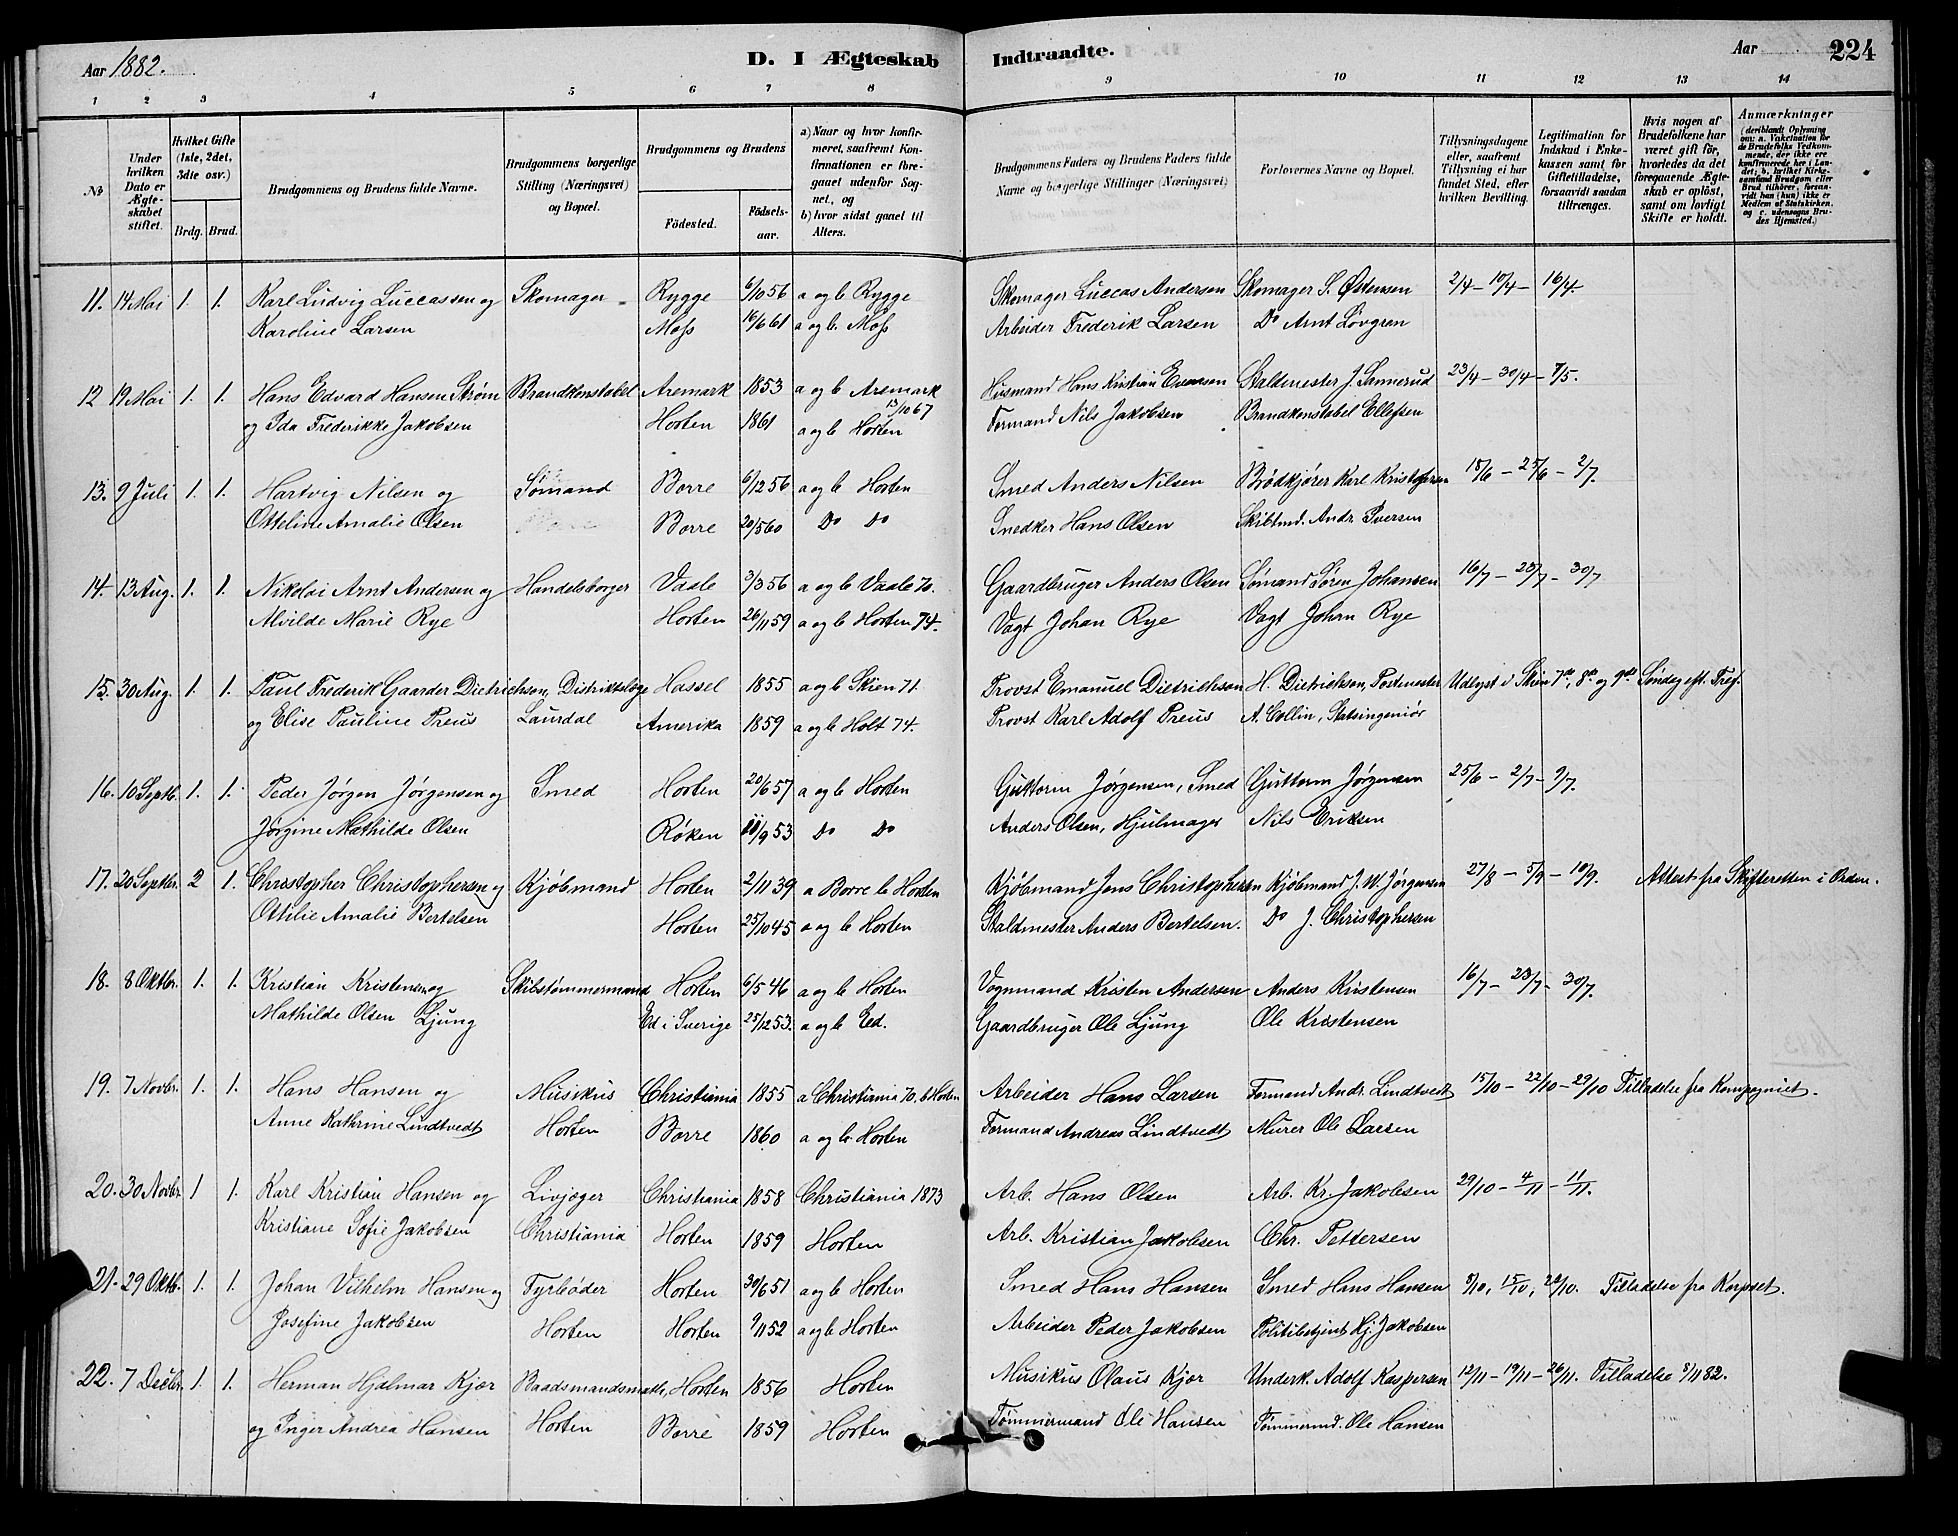 Aar 1882.
D. I Ægteskab Indtraadte.
Aar 224
1 2 3 4 5 6 7 8 9 10 11 12 13 14
No
Under hvilken Dato er Ægteskabet stiftet.
Hvilket Gifte (1ste, 2det, 3die osv.)
Brdg. Brud.
Brudgommens og Brudens fulde Navne.
Brudgommens borgerlige Stilling (Næringsvei) og Bopæl.
Brudgommens og Brudens
Fødested.
Fødselsaar.
a) Naar og hvor konfirmeret, saafremt Konfirmationen er foregaaet udenfor Sognet, og
b) hvor sidst gaaet til Alters.
Brudgommens Faders og Brudens Faders fulde Navne og borgerlige Stillinger (Næringsvei)
Forlovernes Navne og Bopæl.
Tillysningsdagene eller, saafremt Tillysning ei har fundet Sted, efter hvilken Bevilling.
Legitimation for Indskud i Enkekassen samt for Giftetilladelse, forsaavidt saadan tiltrænges.
Hvis nogen af Brudefolkene har været gift før, hvorledes da det foregaaende Ægteskab er opløst, samt om lovligt Skifte er holdt.
Anmærkninger (deriblandt Oplysning om: a. Vakcination for de Brudefolks Vedkommende, der ikke ere konfirmerede her i Landet; b. hvilket Kirkesamfund Brudgom eller Brud tilhører, forsaavidt han (hun) ikke er Medlem af Statskirken, og c. udensogns Brudes Hjemsted.)
11. 14 Mai 1. 1. Karl Ludvig Luccassen og Skomager Rygge 6/10 56 a og b Rygge Skomager Luccas Andersen Skomager S. Østensen 2/4 - 10/4 - 16/4.
Karoline Larsen Moss 16/6 61 a og b. Moss Arbeider Frederik Larsen Do Arnt Løvgren
12 19 Mai 1. 1. Hans Edvard Hansen Strøm Brandkonstabel Aremark 1853 a og b Aremark Husmand Hans Kristian Evensen Staldmester J. Sannerud 23/4 - 30/4 - 7/5.
og Ida Frederikke Jakobsen Horten 1861 a og b Horten 13/10 67 Formand Nils Jakobsen Brandkonstabel Ellefsen
13. 9 Juli 1. 1. Hartvig Nilsen og Sømand Borre 6/12 56 a og b Horten Smed Anders Nilsen Brødkjører Karl Kristofersen 18/6 - 25/6 - 2/7.
Otteline Amalie Olsen Borre 20/5 60 Do Do Snedker Hans Olsen Skibtmd. Andr. Iversen
14. 13 Aug. 1. 1. Nikolai Arnt Andersen og Handelsborger Vaale 3/3 56 a og b Vaale 70. Gaardbruger Anders Olsen Sømand Søren Johansen 16/7 - 23/7 - 30/7
Alvilde Marie Rye Horten 26/11 59 a og b Horten 74. Vagt Johan Rye Vagt Johan Rye
15. 30 Aug. 1. 1. Paul Frederik Gaarder Dietrichson, Distriktslæge Hassel 1855 a og b Skien 71. Provst Emanuel Dietrichson H. Dietrichson, Postmester Udlyst i Skien 7de, 8de og 9de Søndag eft. Tref.
og Elise Pauline Preus Laurdal Amerika 1859 a og b Holt 74. Provst Karl Adolf Preus A. Collin, Statsingeniør
16. 10 Septb. 1. 1. Peder Jørgen Jørgensen og Smed Horten 20/6 57 a og b Horten Guttorm Jørgensen, Smed Guttorm Jørgensen 25/6 - 2/7 - 9/7.
Jørgine Mathilde Olsen Røken 11/9 53 Do Do Anders Olsen, Hjulmager Nils Eriksen
17. 20 Septbr. 2 1. Christopher Christophersen og Kjøbmand Horten 2/11 39 a Borre b Horten Kjøbmand Jens Christophersen Kjøbmand J. W. Jørgensen 27/8 - 3/9 - 10/9. Attest fra Skifteretten i Orden.
Ottilie Amalie Bertelsen Horten 25/10 45 a og b Horten Staldmester Anders Bertelsen. Do J. Christophersen
18. 8 Oktbr. 1. 1. Kristian Kristensen og Skibstømmermand Horten 6/5 46 a og b Horten Vognmand Kristen Andersen Anders Kristensen 16/7 - 23/7 - 30/7.
Mathilde Olsen Ljung Ed i Sverige 25/12 53. a og b Eed. Gaardbruger Ole Ljung Ole Kristensen
19. 7 Novbr. 1. 1. Hans Hansen og Musikus Christiania 1855 a Christiania 70. b Horten Arbeider Hans Larsen Formand Andr. Lindtvedt 15/10 - 22/10 - 29/10 Tilladelse fra Kompagniet.
Anne Kathrine Lindtvedt Horten Borre 1860 a og b Horten Formand Andreas Lindtvedt Murer Ole Larsen
20. 30 Novbr 1 1. Karl Kristian Hansen og Livjæger Christiania 1858 Christiania 1873 Arb. Hans Olsen Arb. Kr. Jakobsen 29/10 - 4/11 - 11/11.
Kristiane Sofie Jakobsen Christiania Horten 1859 Horten Arb. Kristian Jakobsen Chr. Pettersen
21. 29 Oktb. 1. 1. Johan Vilhelm Hansen og Fyrbøder Horten 30/6 51 a og b Horten Smed Hans Hansen Smed Hans Hansen 8/10, 15/10, 22/10. Tilladelse fra Korpset.
Josefine Jakobsen Horten Horten 9/11 52 a og b Horten Arbeider Peder Jakobsen Politibetjent Hj. Jakobsen
22. 7 Decbr. 1. 1. Herman Hjalmar Kjær Baadsmandsmath, Horten 1856 Horten Musikus Olaus Kjær Underk. Adolf Kaspersen 12/11 - 19/11 - 26/11. Tilladelse 8/11 82.
og Inger Andrea Hansen Horten Borre 1859 Horten Tømmermand Ole Hansen Tømmermd. Ole Hansen